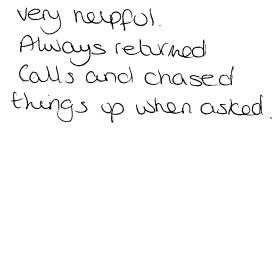 very helpful.
Always returned
Calls and chased
things up when asked.